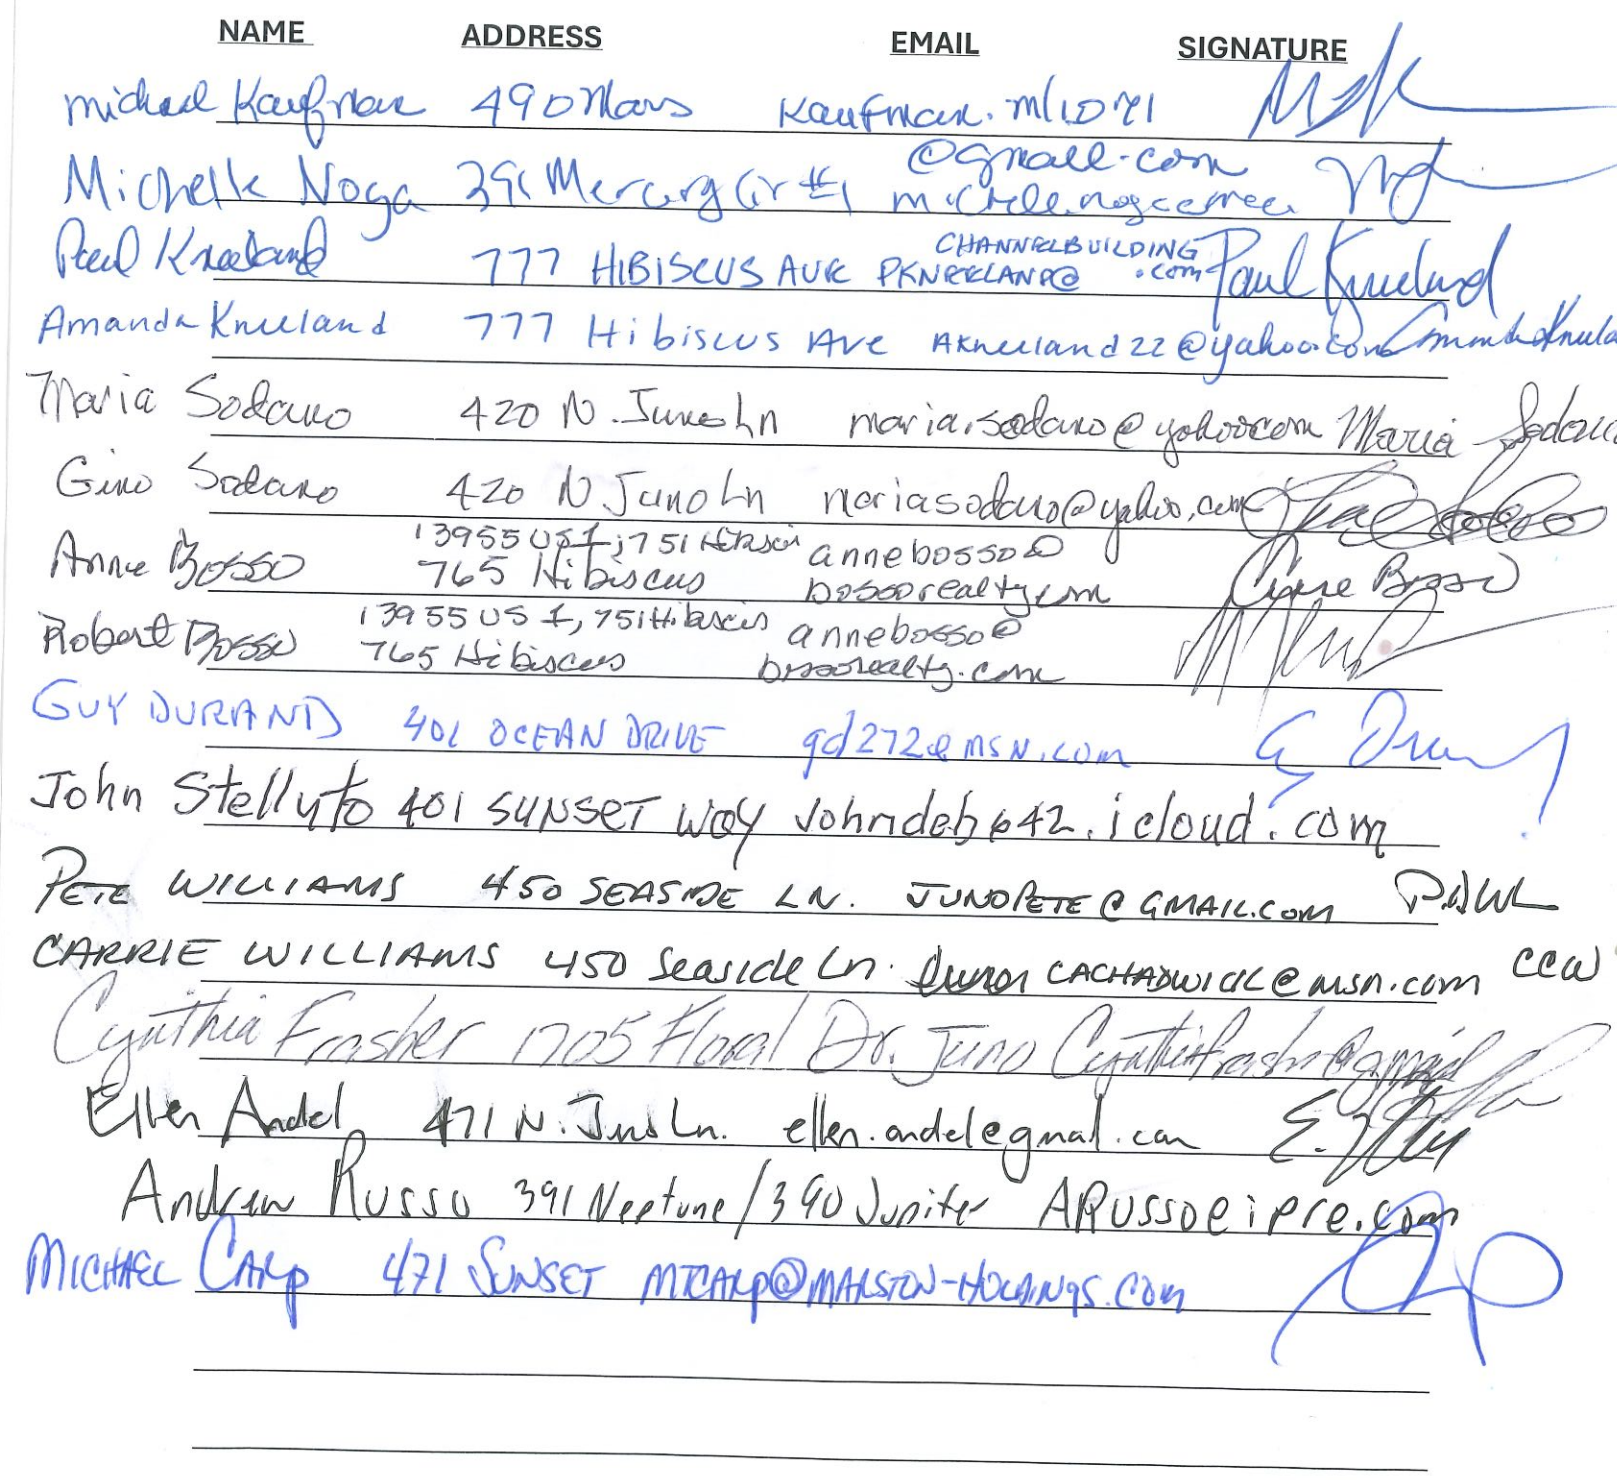 NAME ADDRESS EMAIL SIGNATURE
Michael Kaufman 490 Mars Kaufman.
@gmail.com
Michelle Noga 391 Mercury Cir #1
CHANNELBUILDING
Paul Kneeland 777 HIBISCUS AVE PKNEELAND@ .com Paul Kneeland
Amanda Kneeland 777 Hibiscus Ave AKneeland22@yahoo.com Amanda Kneela
Maria Sodano 420 N. Juno Ln maria.sodano@yahoo.com Maria Sodano
Gino Sodano 420 N Juno Ln mariasodano@yahoo.com
13955 US 1, 751 Hibiscus annebosso@
Anne Bosso 765 Hibiscus bossorealty.com Anne Bosso
13955 US 1, 751 Hibiscus annebosso@
Robert Bosso 765 Hibiscus bossorealty.com
GUY DURAND 401 OCEAN DRIVE gd272@msn.com G Durand
John Stelluto 401 SUNSET WAY Johndeb642.icloud.com
PETE WILLIAMS 450 SEASIDE LN. JUNOPETE@GMAIL.COM
CARRIE WILLIAMS 450 Seaside Ln. CACHADWICK@msn.com CCW
Cynthia Frasher 1705 Floral Dr. Juno Cynthiafrasher@gmail
Ellen Andel 471 N. Juno Ln. ellen.andel@gmail.com
Andrew Russo 391 Neptune/390 Jupiter ARusso@ipre.com
MICHAEL CARP 471 SUNSET MTCARP@MARSTON-HOLDINGS.COM